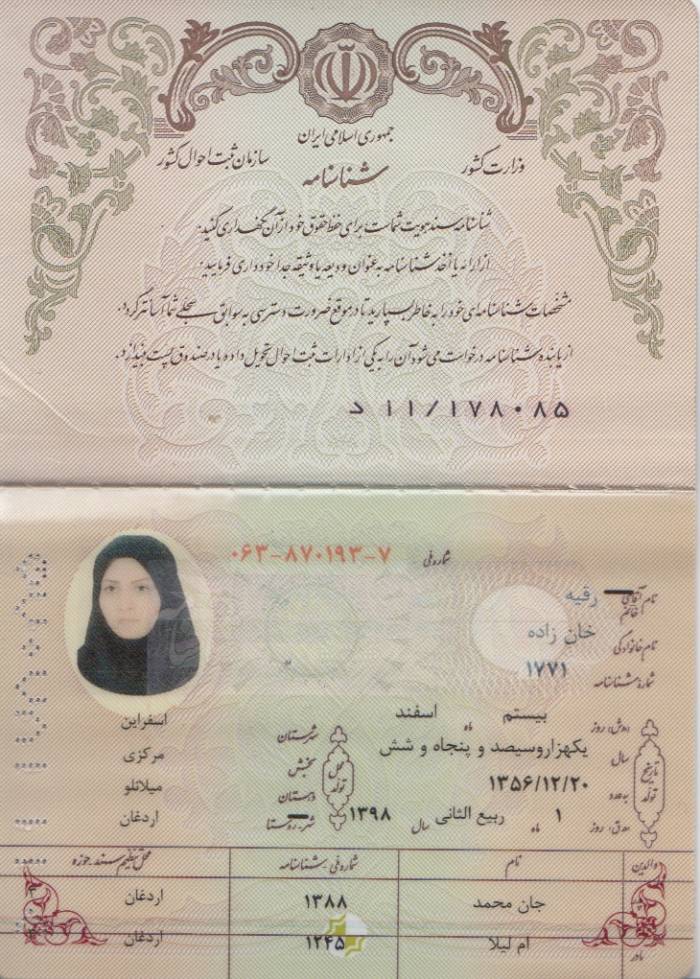 جمهوری اسلامی ایران
وزارت کشور
سازمان ثبت احوال کشور
شناسنامه
شناسنامه سند هویت شماست برای حفظ حقوق خود از آن نگهداری کنید.
از ارائه یا اخذ شناسنامه به عنوان ودیعه یا وثیقه جداً خودداری فرمایید.
مشخصات شناسنامه‌ای خود را به خاطر بسپارید تا در موقع ضرورت دسترسی به سوابق سجلی شما آسانتر گردد.
از یابنده شناسنامه درخواست می‌شود آن را به یکی از ادارات ثبت احوال تحویل داده یا در صندوق پست بیندازد.
د ۱۱/۱۷۸۰۸۵
شماره ملی ۰۶۳-۸۷۰۱۹۳-۷
نام آقای خانم رقیه
نام خانوادگی خان زاده
شماره شناسنامه ۱۷۷۱
تاریخ تولد
روز بیستم ماه اسفند
سال یکهزاروسیصد و پنجاه و شش
به عدد ۱۳۵۶/۱۲/۲۰
روز ۱ ماه ربیع الثانی سال ۱۳۹۸
محل تولد
شهرستان اسفراین
بخش مرکزی
دهستان میلانلو
شهر-روستا اردغان
والدین نام شماره ملی-شناسنامه محل تنظیم سند-حوزه
جان محمد ۱۳۸۸ اردغان
مادر ام لیلا ۱۲۴۵ اردغان